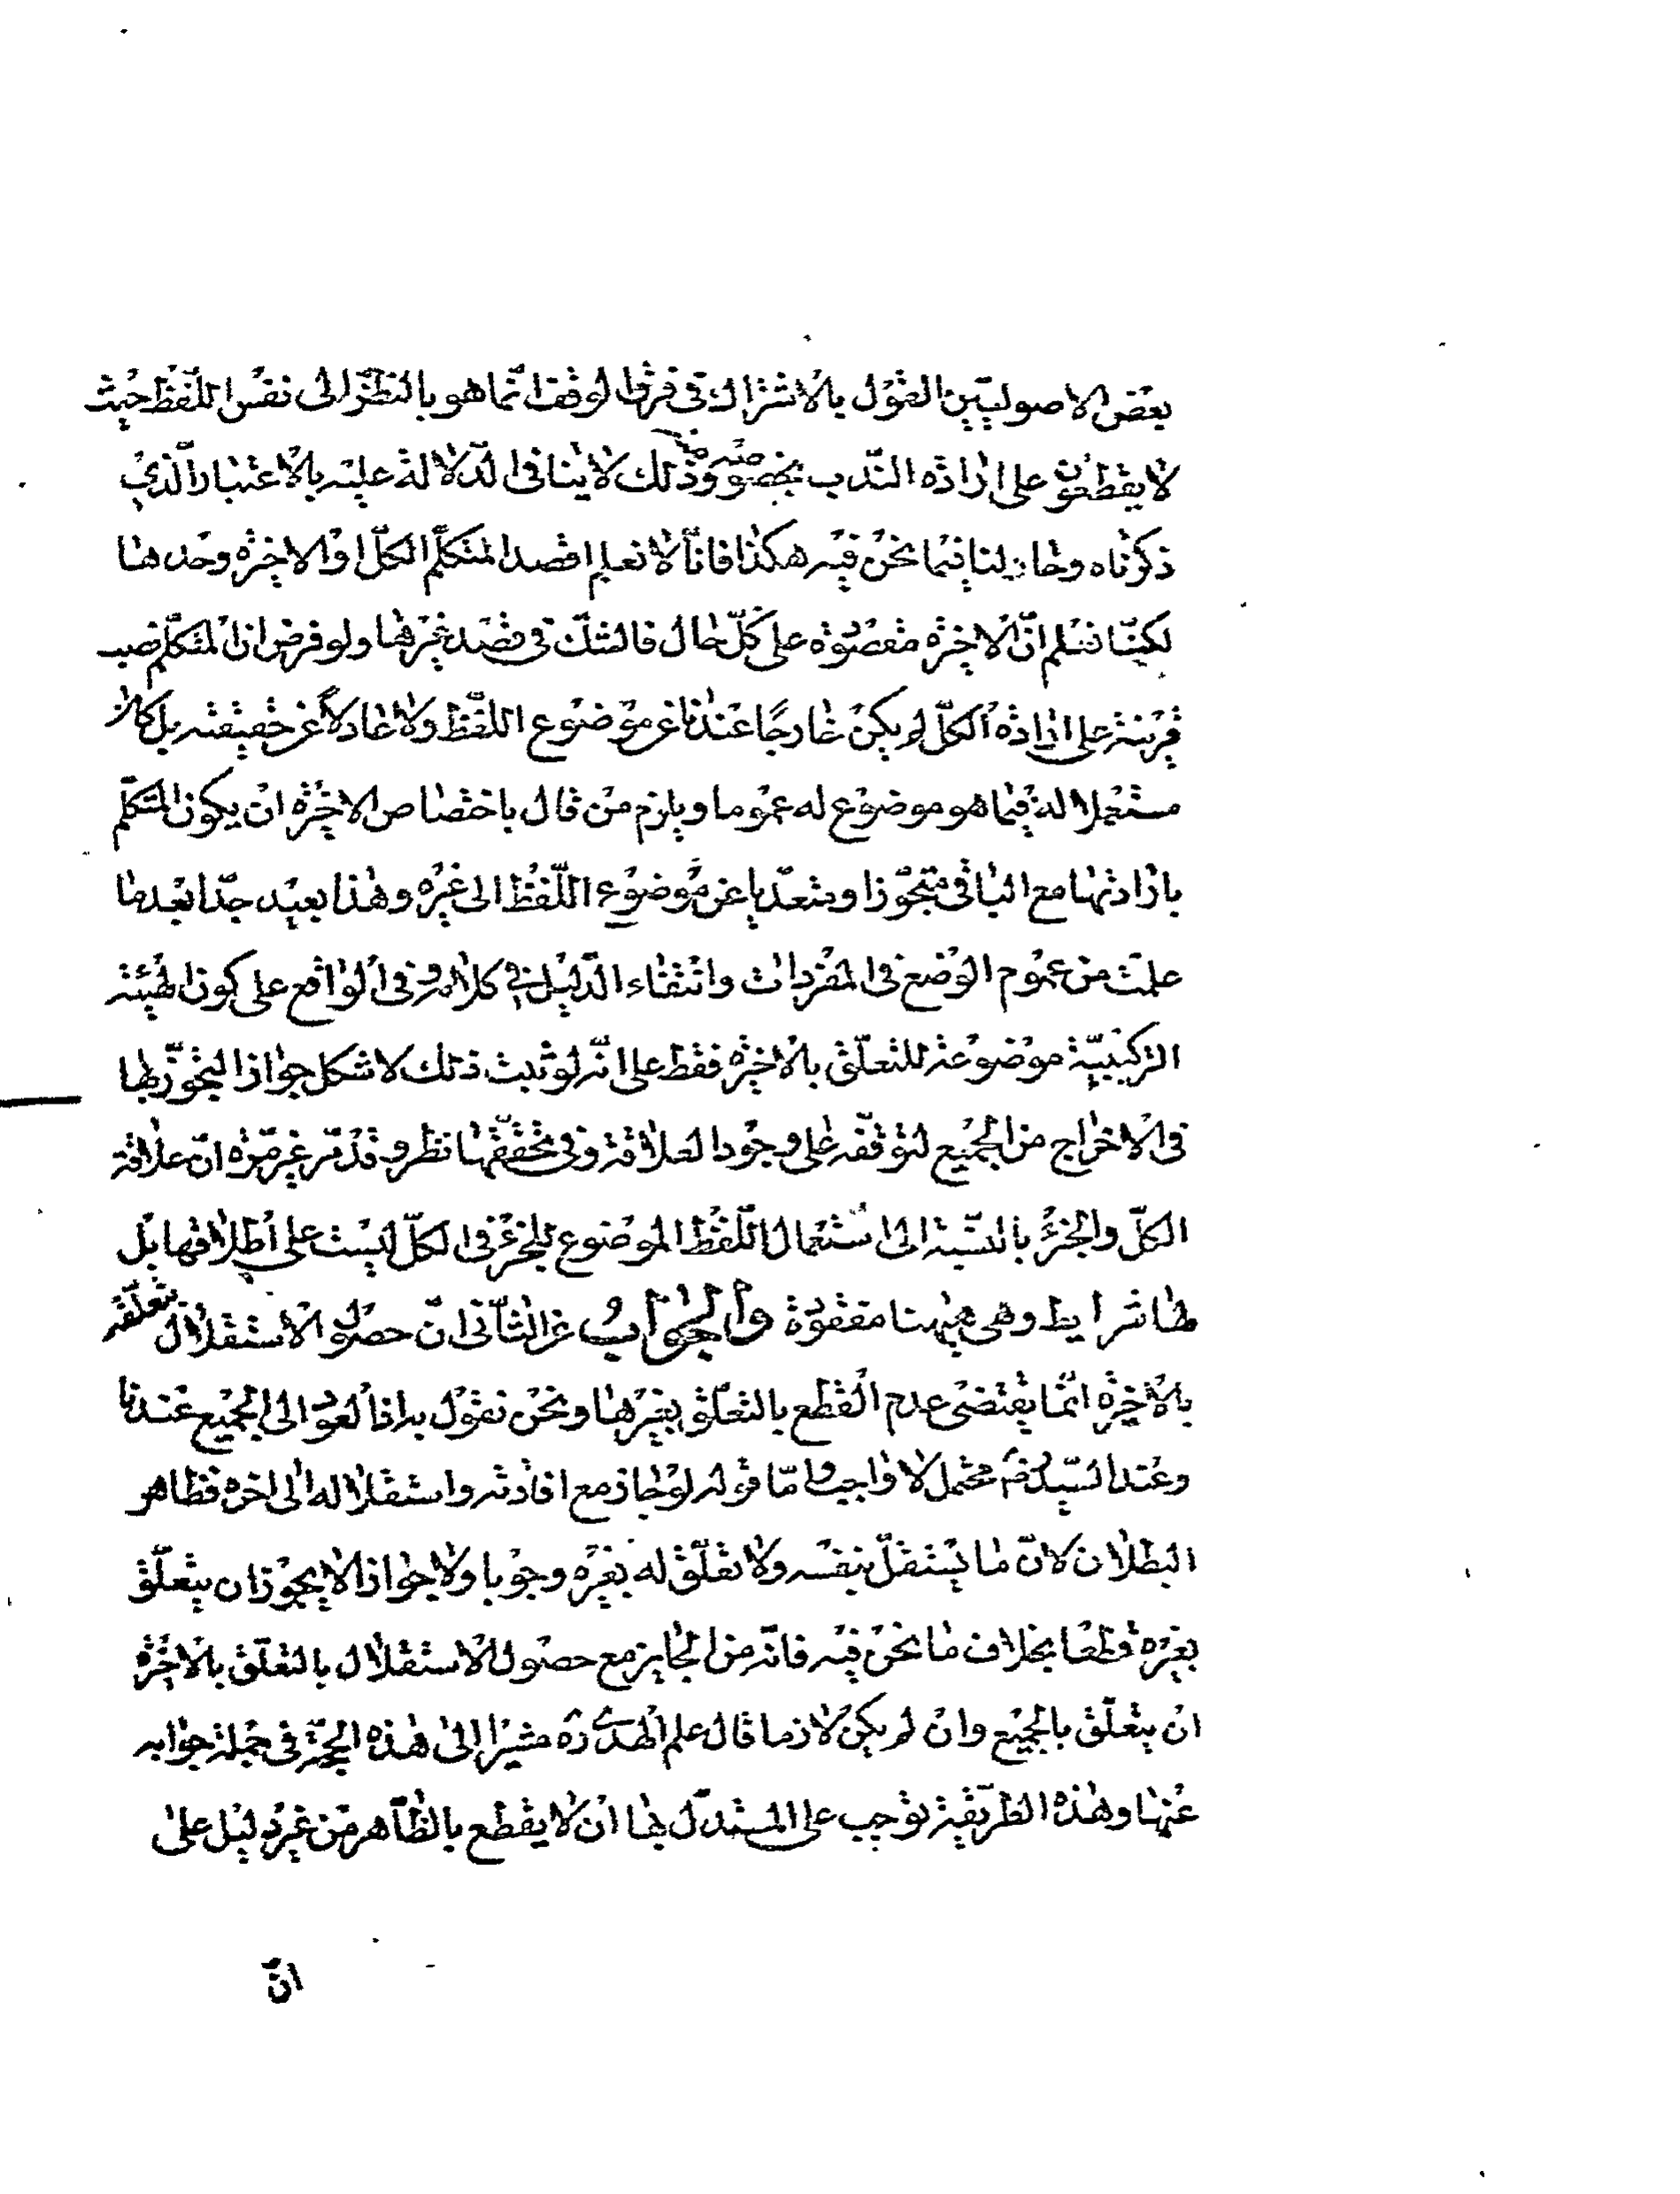 بعض الاصوليّين القول بالاشتراك في فرق الوقف انّما هو بالنّظر الى نفس اللّفظ حيث
لا يقطعون على ارادة النّدب بخصوصه وذلك لا ينافي الدّلالة عليه بالاعتبار الّذي
ذكرناه وحالنا فيما نحن فيه هكذا فانّا لا نعلم اقصد المتكلّم الكلّ او الاخيرة وحدها
لكنّنا نعلم انّ الاخيرة مقصودة على كلّ حال فالشكّ في قصد غيرها ولو فرض انّ المتكلّم نصب
قرينة على ارادة الكلّ لم يكن خارجًا عندنا عن موضوع اللّفظ ولا عادلاً عن حقيقته بل كان
مستعملا له فيما هو موضوع له عموما ويلزم من قال باختصاص الاخيرة ان يكون المتكلّم
بارادتها مع الباقي متجوّزا ومتعدّيا عن موضوع اللّفظ الى غيره وهذا بعيد جدّا بعد ما
علمت من عموم الوضع في المفردات وانتفاء الدّليل في كلامهم وفي الواقع على كون الهيئة
التركيبيّة موضوعة للتعلّق بالاخيرة فقط على انّه لو ثبت ذلك لاشكل جواز التجوّز بها
في الاخراج من الجميع لتوقّفه على وجود العلاقة وفي تحقّقها نظر وقد مرّ غير مرّة انّ علاقة
الكلّ والجزء بالنسبة الى استعمال اللّفظ الموضوع للجزء في الكلّ ليست على اطلاقها بل
لها شرايط وهي هيهنا مفقودة والجواب عن الثّاني انّ حصول الاستقلال بتعلّقه
بالاخيرة انّما يقتضي عدم القطع بالتعلّق بغيرها ونحن نقول به اذ العود الى الجميع عندنا
وعند السّيّد رضـ محتمل لا واجب وامّا قوله لو جاز مع افادته واستقلاله الى اخره فظاهر
البطلان لانّ ما يستقلّ بنفسه ولا تعلّق له بغيره وجوبا ولا جوازا لا يجوز ان يتعلّق
بغيره قطعا بخلاف ما نحن فيه فانّه من الجايز مع حصول الاستقلال بالتعلّق بالاخيرة
ان يتعلّق بالجميع وان لم يكن لازما قال علم الهدى ره مشيرا الى هذه الحجّة في جملة جوابه
عنها وهذه الطّريقة توجب على المستدلّ بها ان لا يقطع بالظّاهر من غير دليل على
انّ